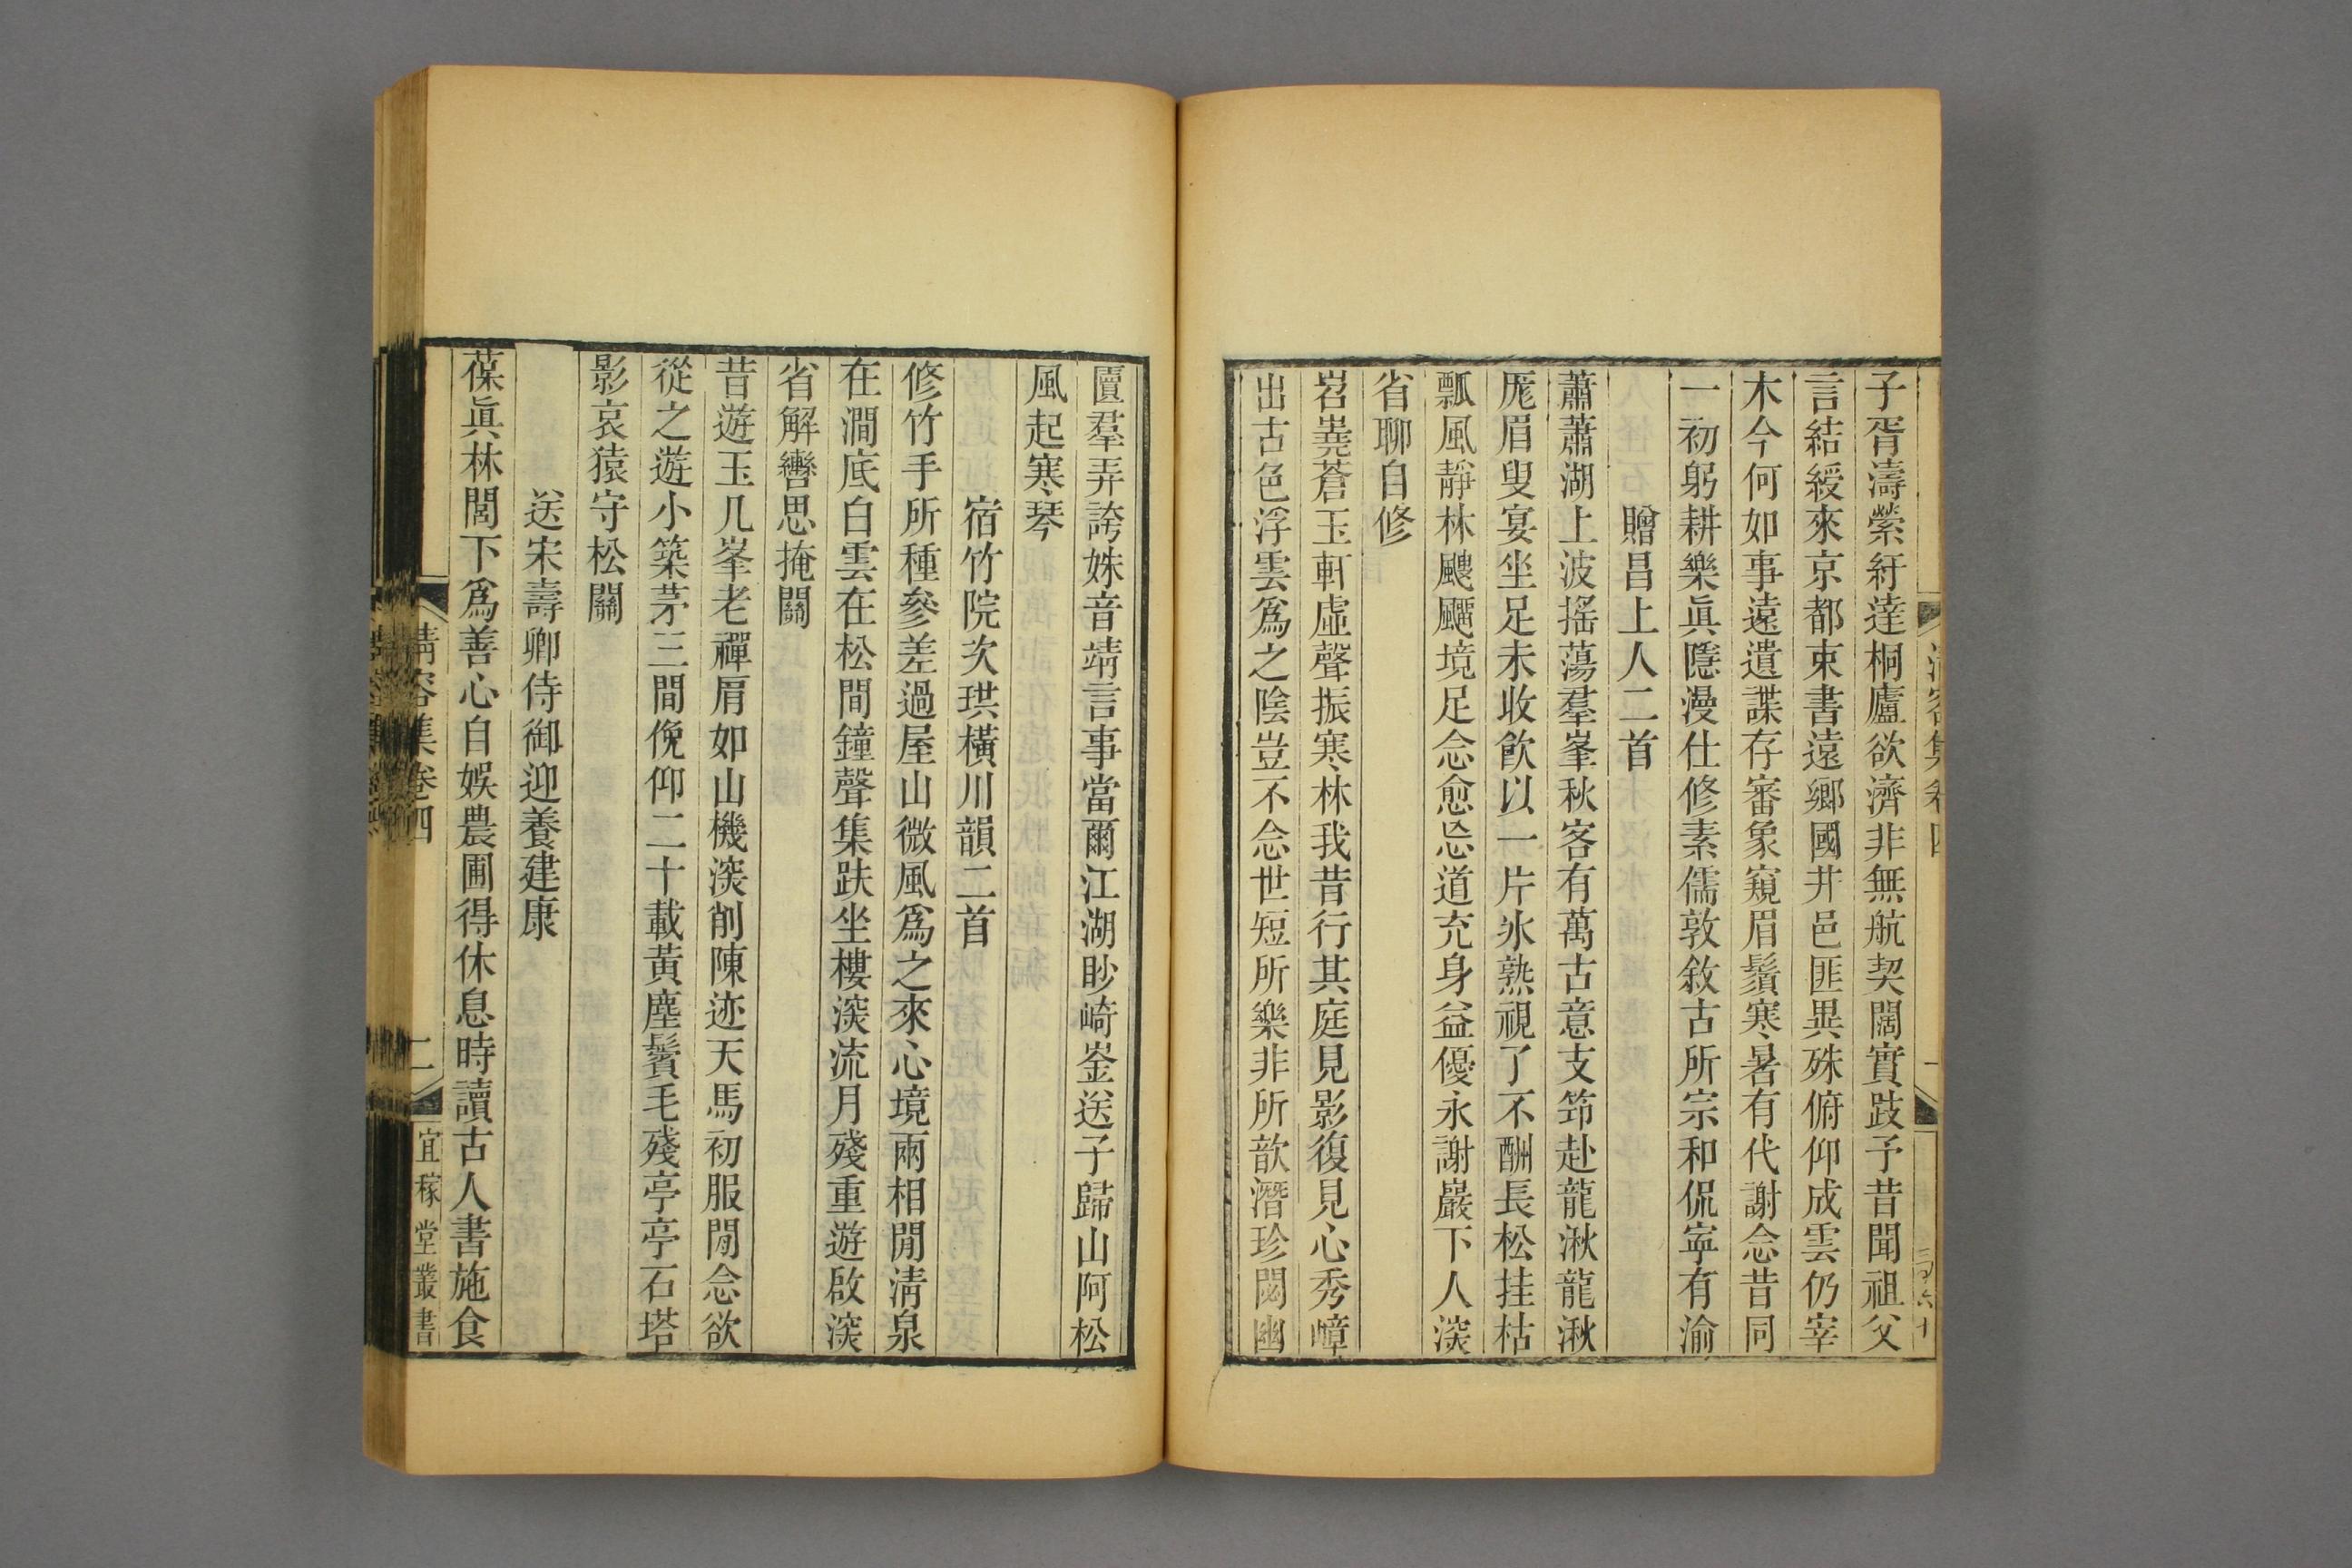 子胥濤縈紆達桐廬欲濟非無航契闊實跂予昔聞祖父
言結綬來京都束書遠鄉國井邑匪異殊俯仰成雲仍宰
木今何如事遠遺諜存審象窺眉鬚寒暑有代謝念昔同
一初躬耕樂眞隱漫仕修素儒敦敘古所宗和侃寧有渝
贈昌上人二首
蕭蕭湖上波搖蕩羣峯秋客有萬古意支笻赴龍湫龍湫
厖眉叟宴坐足未收飲以一片氷熟視了不酬長松挂枯
瓢風靜林颼飅境足念愈忘道充身益優永謝巖下人深
省聊自修
岧嶤蒼玉軒虛聲振寒林我昔行其庭見影復見心秀嶂
出古色浮雲爲之陰豈不念世短所樂非所歆潛珍閟幽
匵羣弄誇姝音靖言事當爾江湖眇崎崟送子歸山阿松
風起寒琴
宿竹院次珙橫川韻二首
修竹手所種參差過屋山微風爲之來心境兩相閒淸泉
在澗底白雲在松間鐘聲集趺坐樓深流月殘重遊啟深
省解轡思掩關
昔遊玉几峯老禪屑如山機深削陳迹天馬初服閒念欲
從之遊小築茅三間俛仰二十載黃塵鬢毛殘亭亭石塔
影哀猿守松關
送宋壽卿侍御迎養建康
葆眞林閭下爲善心自娛農圃得休息時讀古人書施食
清容集卷四
二
宜稼堂叢書